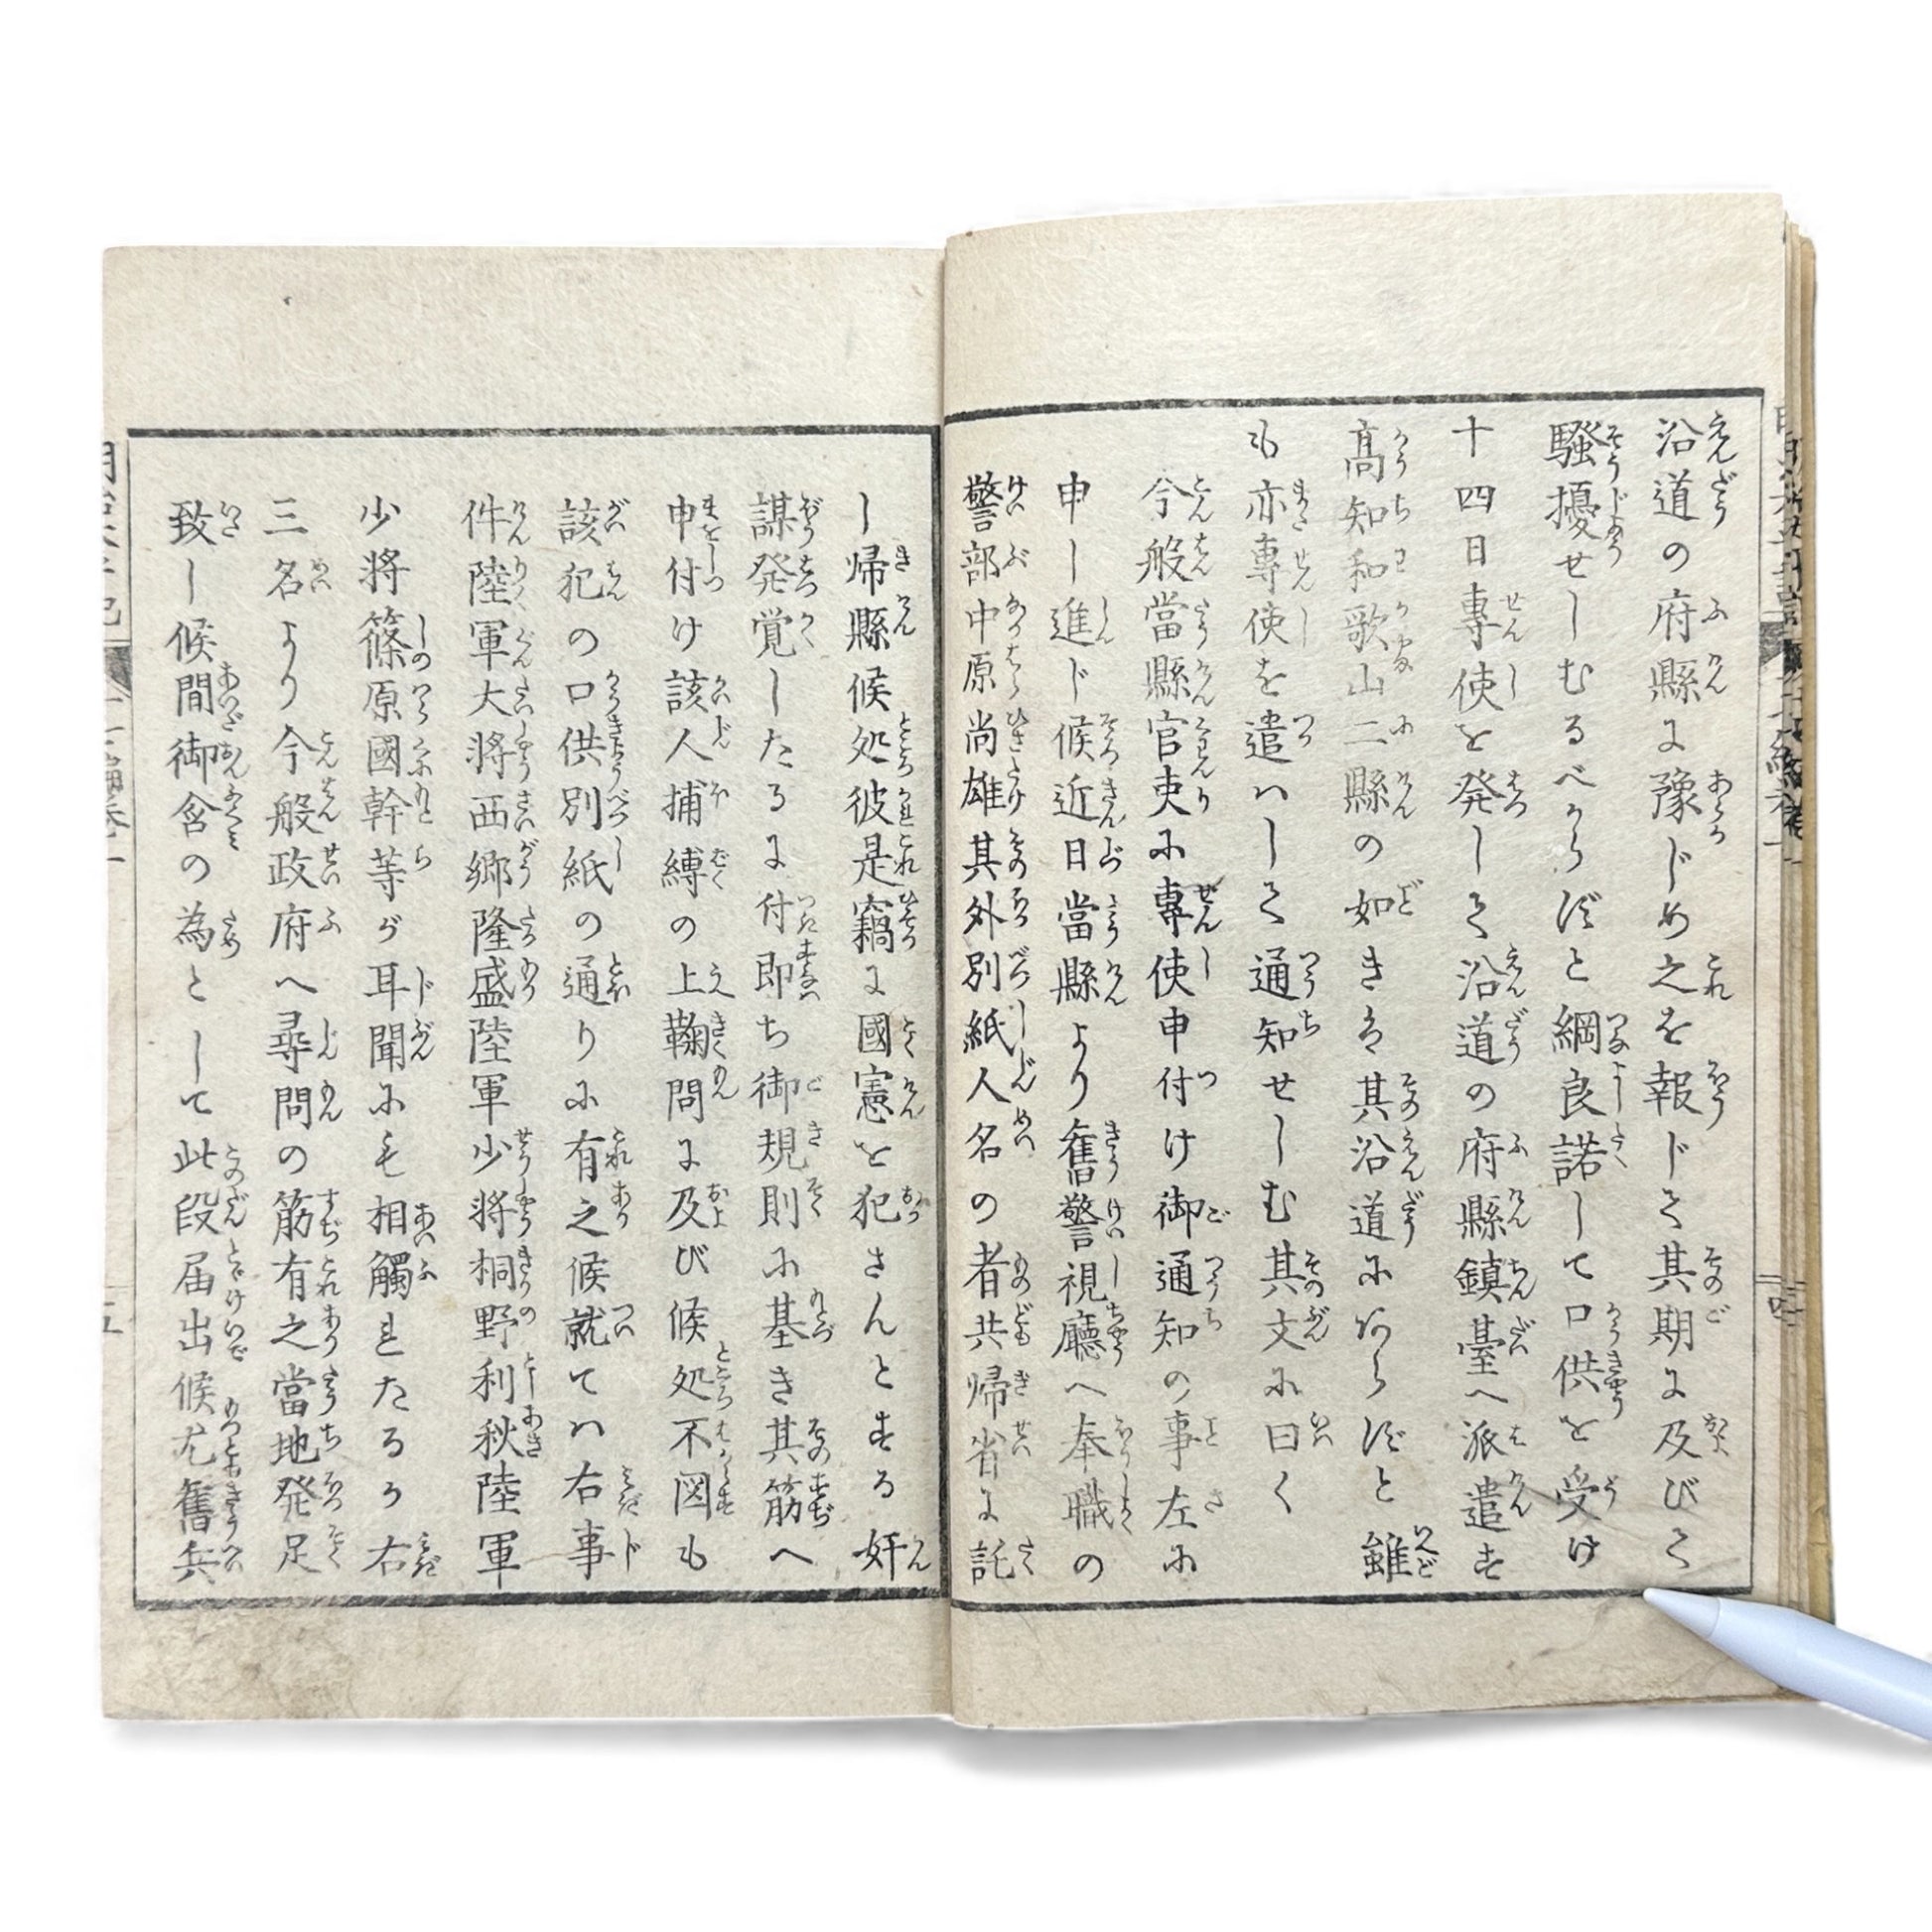 沿道の府縣に豫じめ之を報じて其期に及びて
騒擾せしむるべからずと綱良諾して口供を受け
十四日專使を発して沿道の府縣鎮臺へ派遣す
髙知和歌山二縣の如きは其沿道にあらずと雖
も亦專使を遣ハして通知せしむ其文に曰く
今般當縣官吏に專使申付け御通知の事左に
申し進じ候近日當縣より舊警視廳へ奉職の
警部中原尚雄其外別紙人名の者共帰省に託
し帰縣候処彼是竊に國憲を犯さんとする奸
謀発覚したるに付即ち御規則に基き其筋へ
申付け該人捕縛の上鞠問に及び候処不図も
該犯の口供別紙の通りに有之候就てハ右事
件陸軍大将西郷隆盛陸軍少将桐野利秋陸軍
少将篠原國幹等が耳聞にも相觸れたるか右
三名より今般政府へ尋問の筋有之當地発足
致し候間御含の為として此段届出候尤舊兵